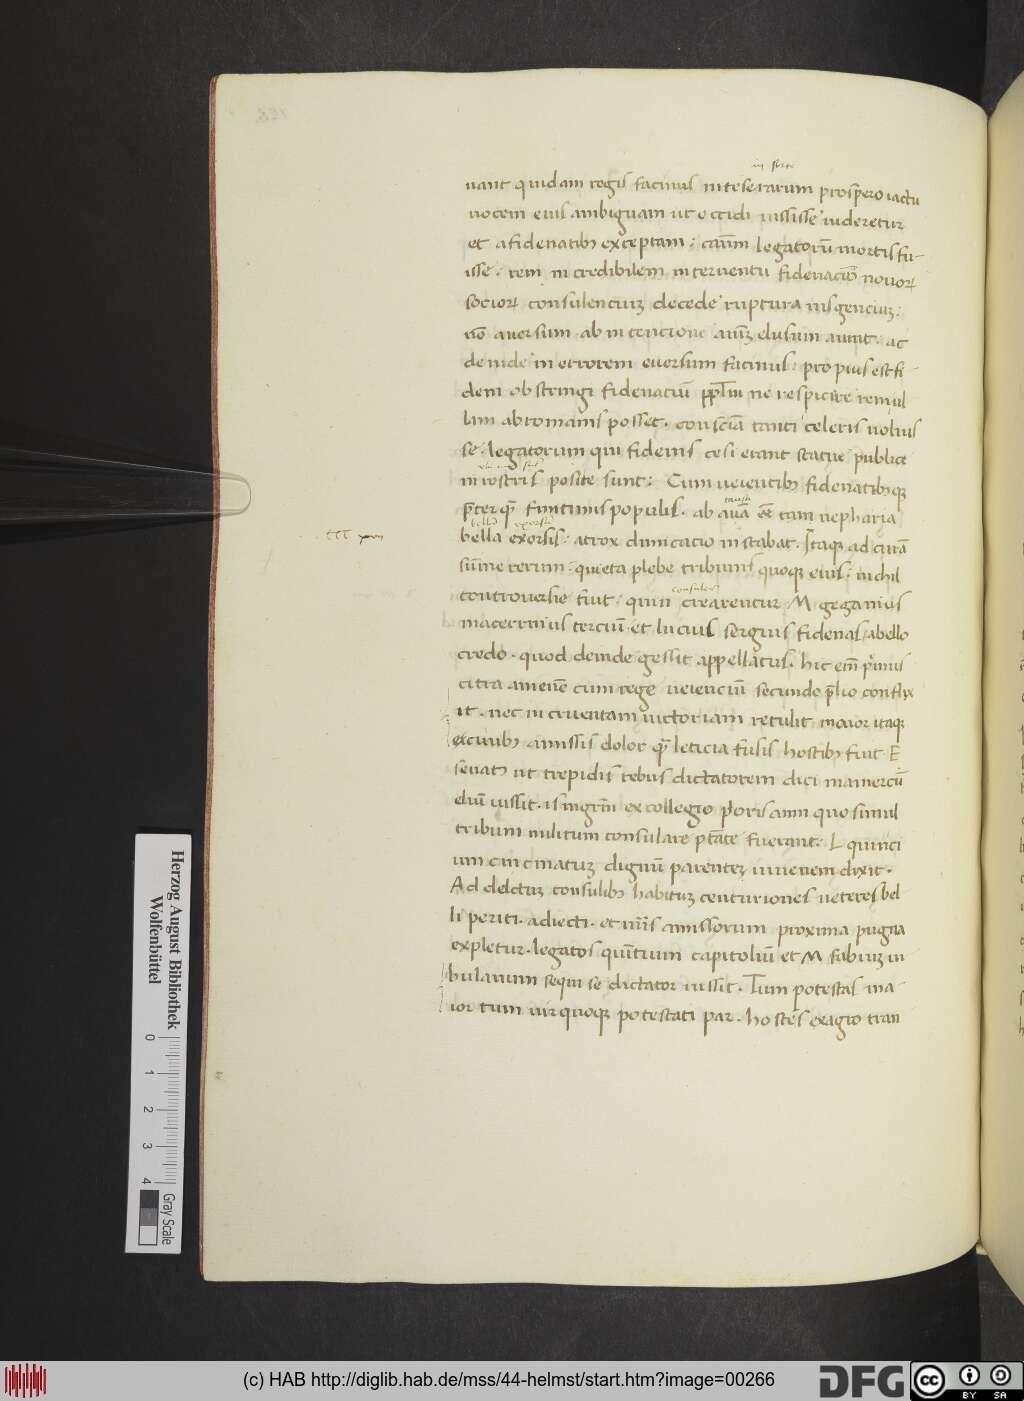 in forte
uant quidam regis facinus inteserarum prospero iactu
uocem eius ambiguam ut occidi iussisse uideretur
et a fidenatibus exceptam: causam legatorum mortis fu-
isse. rem incredibilem interuentu fidenacium nouorum
sociorum consulencium decede ruptura iusgencium:
non auersum ab intencione animum elusum aiunt. ac
deinde in errorem euersum facinus: propius est fi-
dem obstringi fidenacium populum ne respicere re nul
lam ab romanis posset. consciencia tanti celeris uoluis
se. legatorum qui fidenis cesi erant statue publice
in rostris posite sunt: Cum ueientibus fidenatibusque
preterquam finitimis populis. ab causa esse tam nepharia
bella exorsis: atrox dimicacio instabat. Itaque ad curam
ttt xvii
summe rerum: quieta plebe tribunis quoque eius: nichil
consules
controuersie fuit: quin crearentur M geganius
macerinus tercium. et lucius sergius fidenas a bello
credo. quod deinde gessit appellatus. hic enim primus
citra amene cum rege ueiencium secundo prelio conflix
it. nec incruentam uictoriam retulit maior itaque
ex ciuibus amissis dolor quam leticia fusis hostibus fuit E
senatus ut trepidis rebus dictatorem dici mamercum
elium iussit. is magistrum ex collegio prioris anni quo simul
tribuni militum consulare potestate fuerant. L quinci
um cincinatum dignum parentem iuuenem dixit.
Ad delectum consulibus habitum centuriones ueteres bel
li periti. adiecti. et numerus amissorum proxima pugna
expletur. legatos quintium capitolium et M fabium ui
bulanum sequi se dictator iussit. Tum potestas ma-
ior tum uir quoque potestati par. hostes ex agro roman
Herzog August Bibliothek
Wolfenbüttel
0 1 2 3 4
Gray Scale
(c) HAB http://diglib.hab.de/mss/44-helmst/start.htm?image=00266
DFG
cc
BY SA